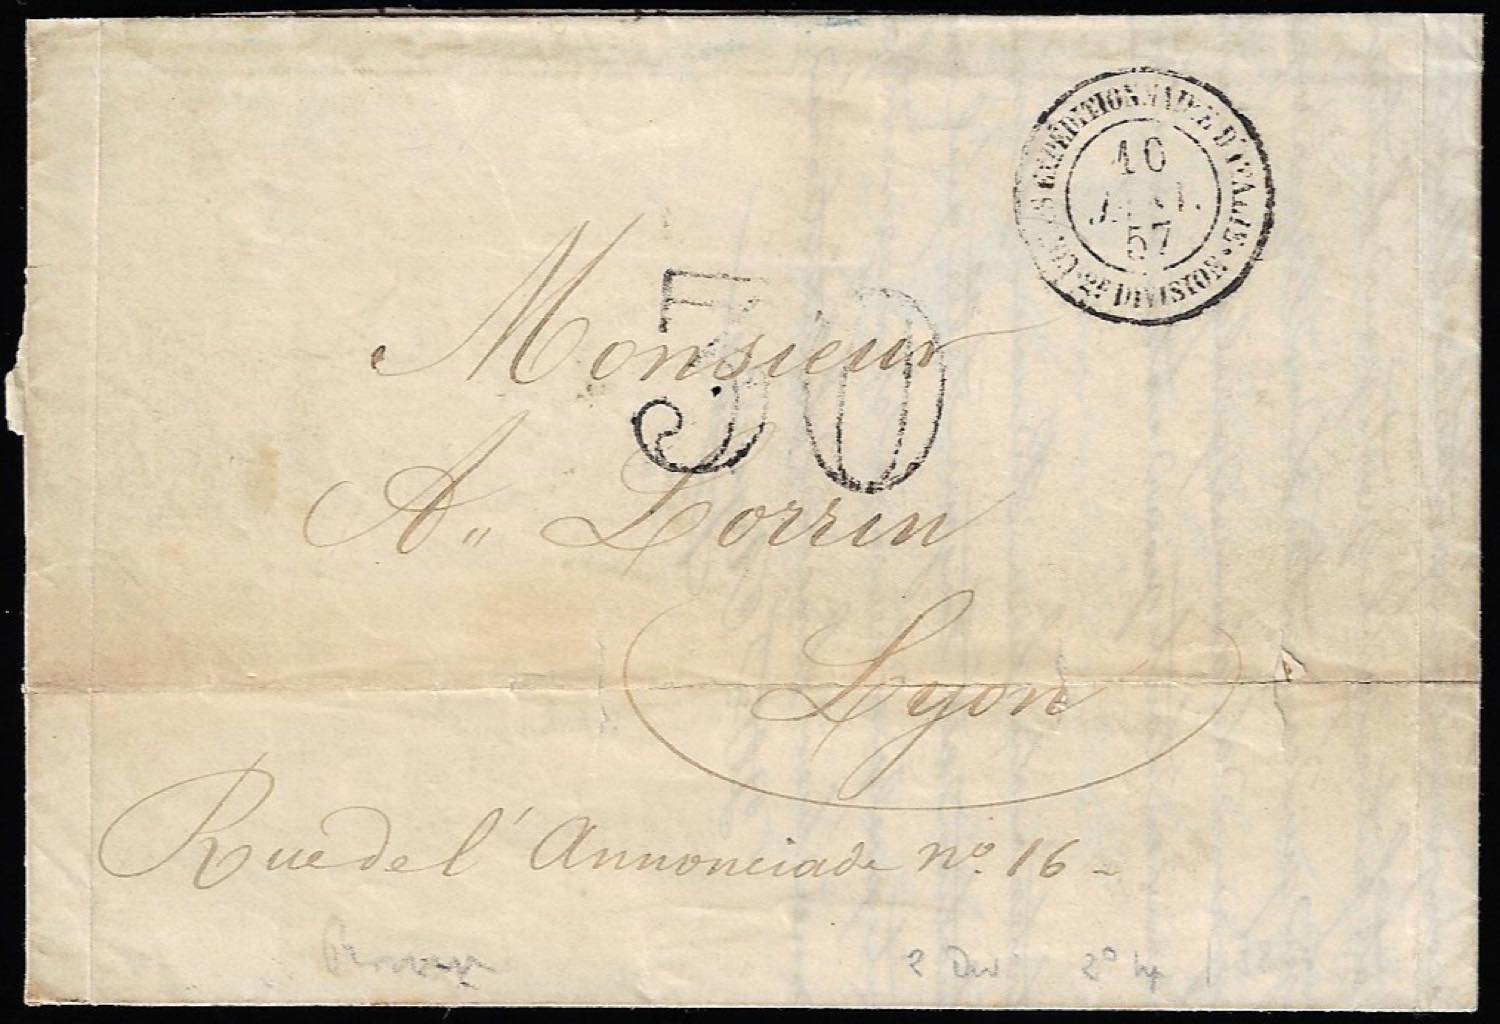 CORPS EXPÉDITIONNAIRE D'ITALIE
10
57
2E DIVISION
30
Monsieur
A" Lorrin
Lyon
Rue de l'Annonciade no. 16
2 Div